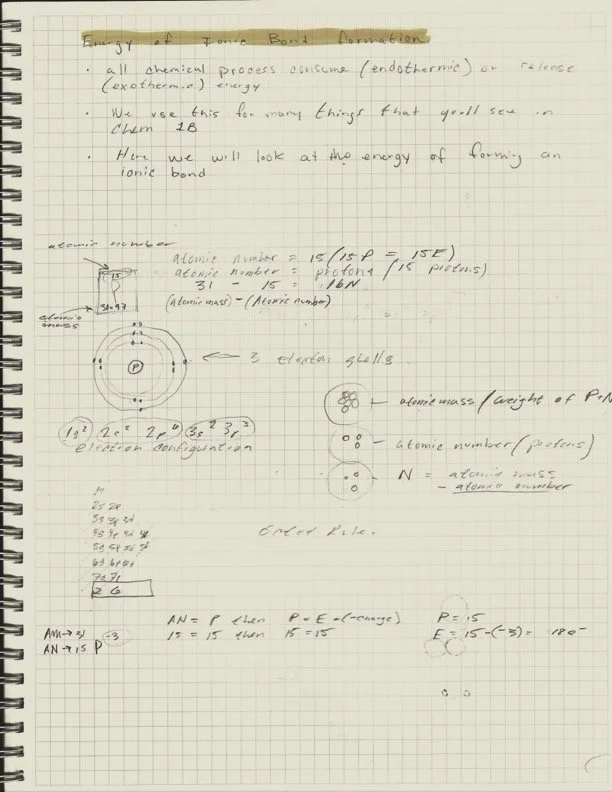 Energy of Ionic Bond formation
· all chemical process consume (endothermic) or release
(exothermic) energy
· We use this for many things that you'll see in
Chem 1B
· Here we will look at the energy of forming an
ionic bond
atomic number
15
P
30.97
atomic
mass
atomic number = 15 (15P = 15E)
atomic number = protons (15 protons)
31 - 15 = 16N
(atomic mass) - (Atomic number)
P
3 electon shells
1s² 2s² 2p⁶ 3s² 3p³
election configuration
atomic mass / weight of P+N
atomic number (protons)
N = atomic mass
- atomic number
1s
2s 2p
3s 3p 3d
4s 4p 4d 4f
5s 5p 5d 5f
6s 6p 6d
7s 7p
2 6
Rule.
AN = P then P = E +(-charge)
15 = 15 then 15 = 15
P = 15
E = 15-(-3) = 18e⁻
AM→31
AN→15 P -3